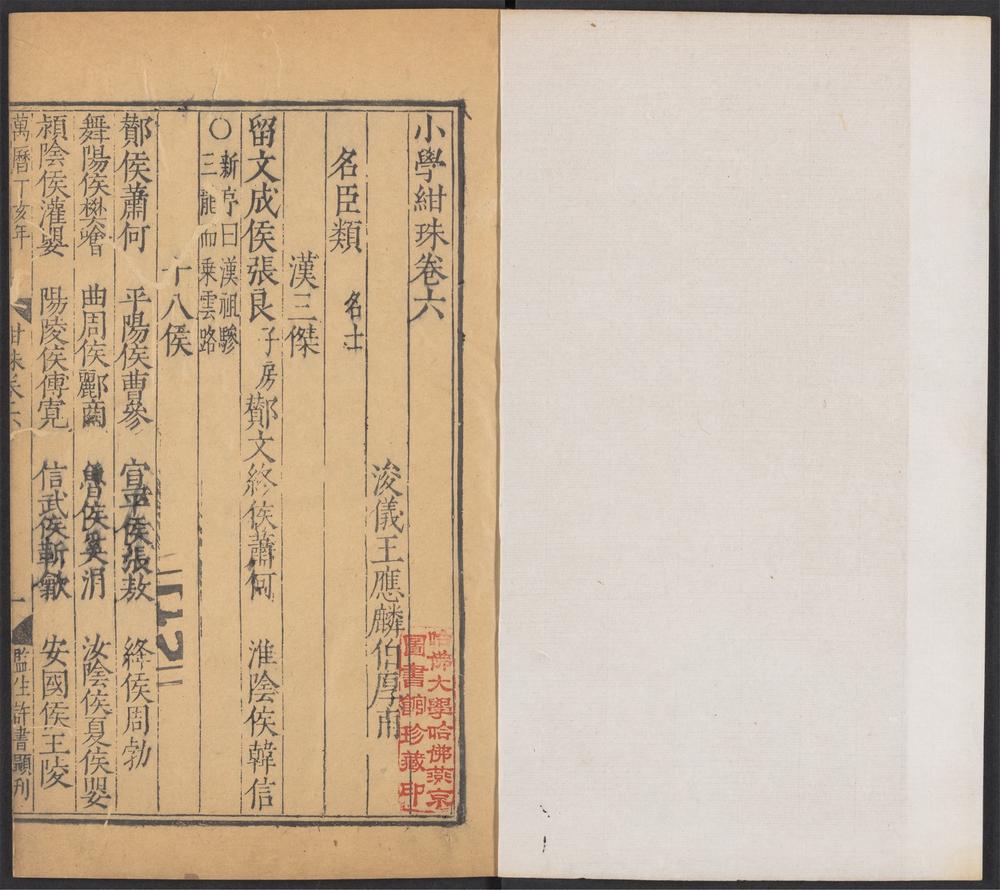 小學紺珠卷六
浚儀王應麟伯厚甫
名臣類 名士
漢三傑
留文成侯張良子房 酇文終侯蕭何 淮陰侯韓信
○新序曰漢祖驂
三龍而乗雲路
十八侯
酇侯蕭何 平陽侯曹參 宣平侯張敖 絳侯周勃
舞陽侯樊噲 曲周侯酈商 魯侯奚涓 汝陰侯夏侯嬰
潁陰侯灌嬰 陽陵侯傅寬 信武侯靳歙 安國侯王陵
萬曆丁亥年 紺珠卷六 一 監生許書顯刊
哈佛大學哈佛燕京
圖書館珍藏印